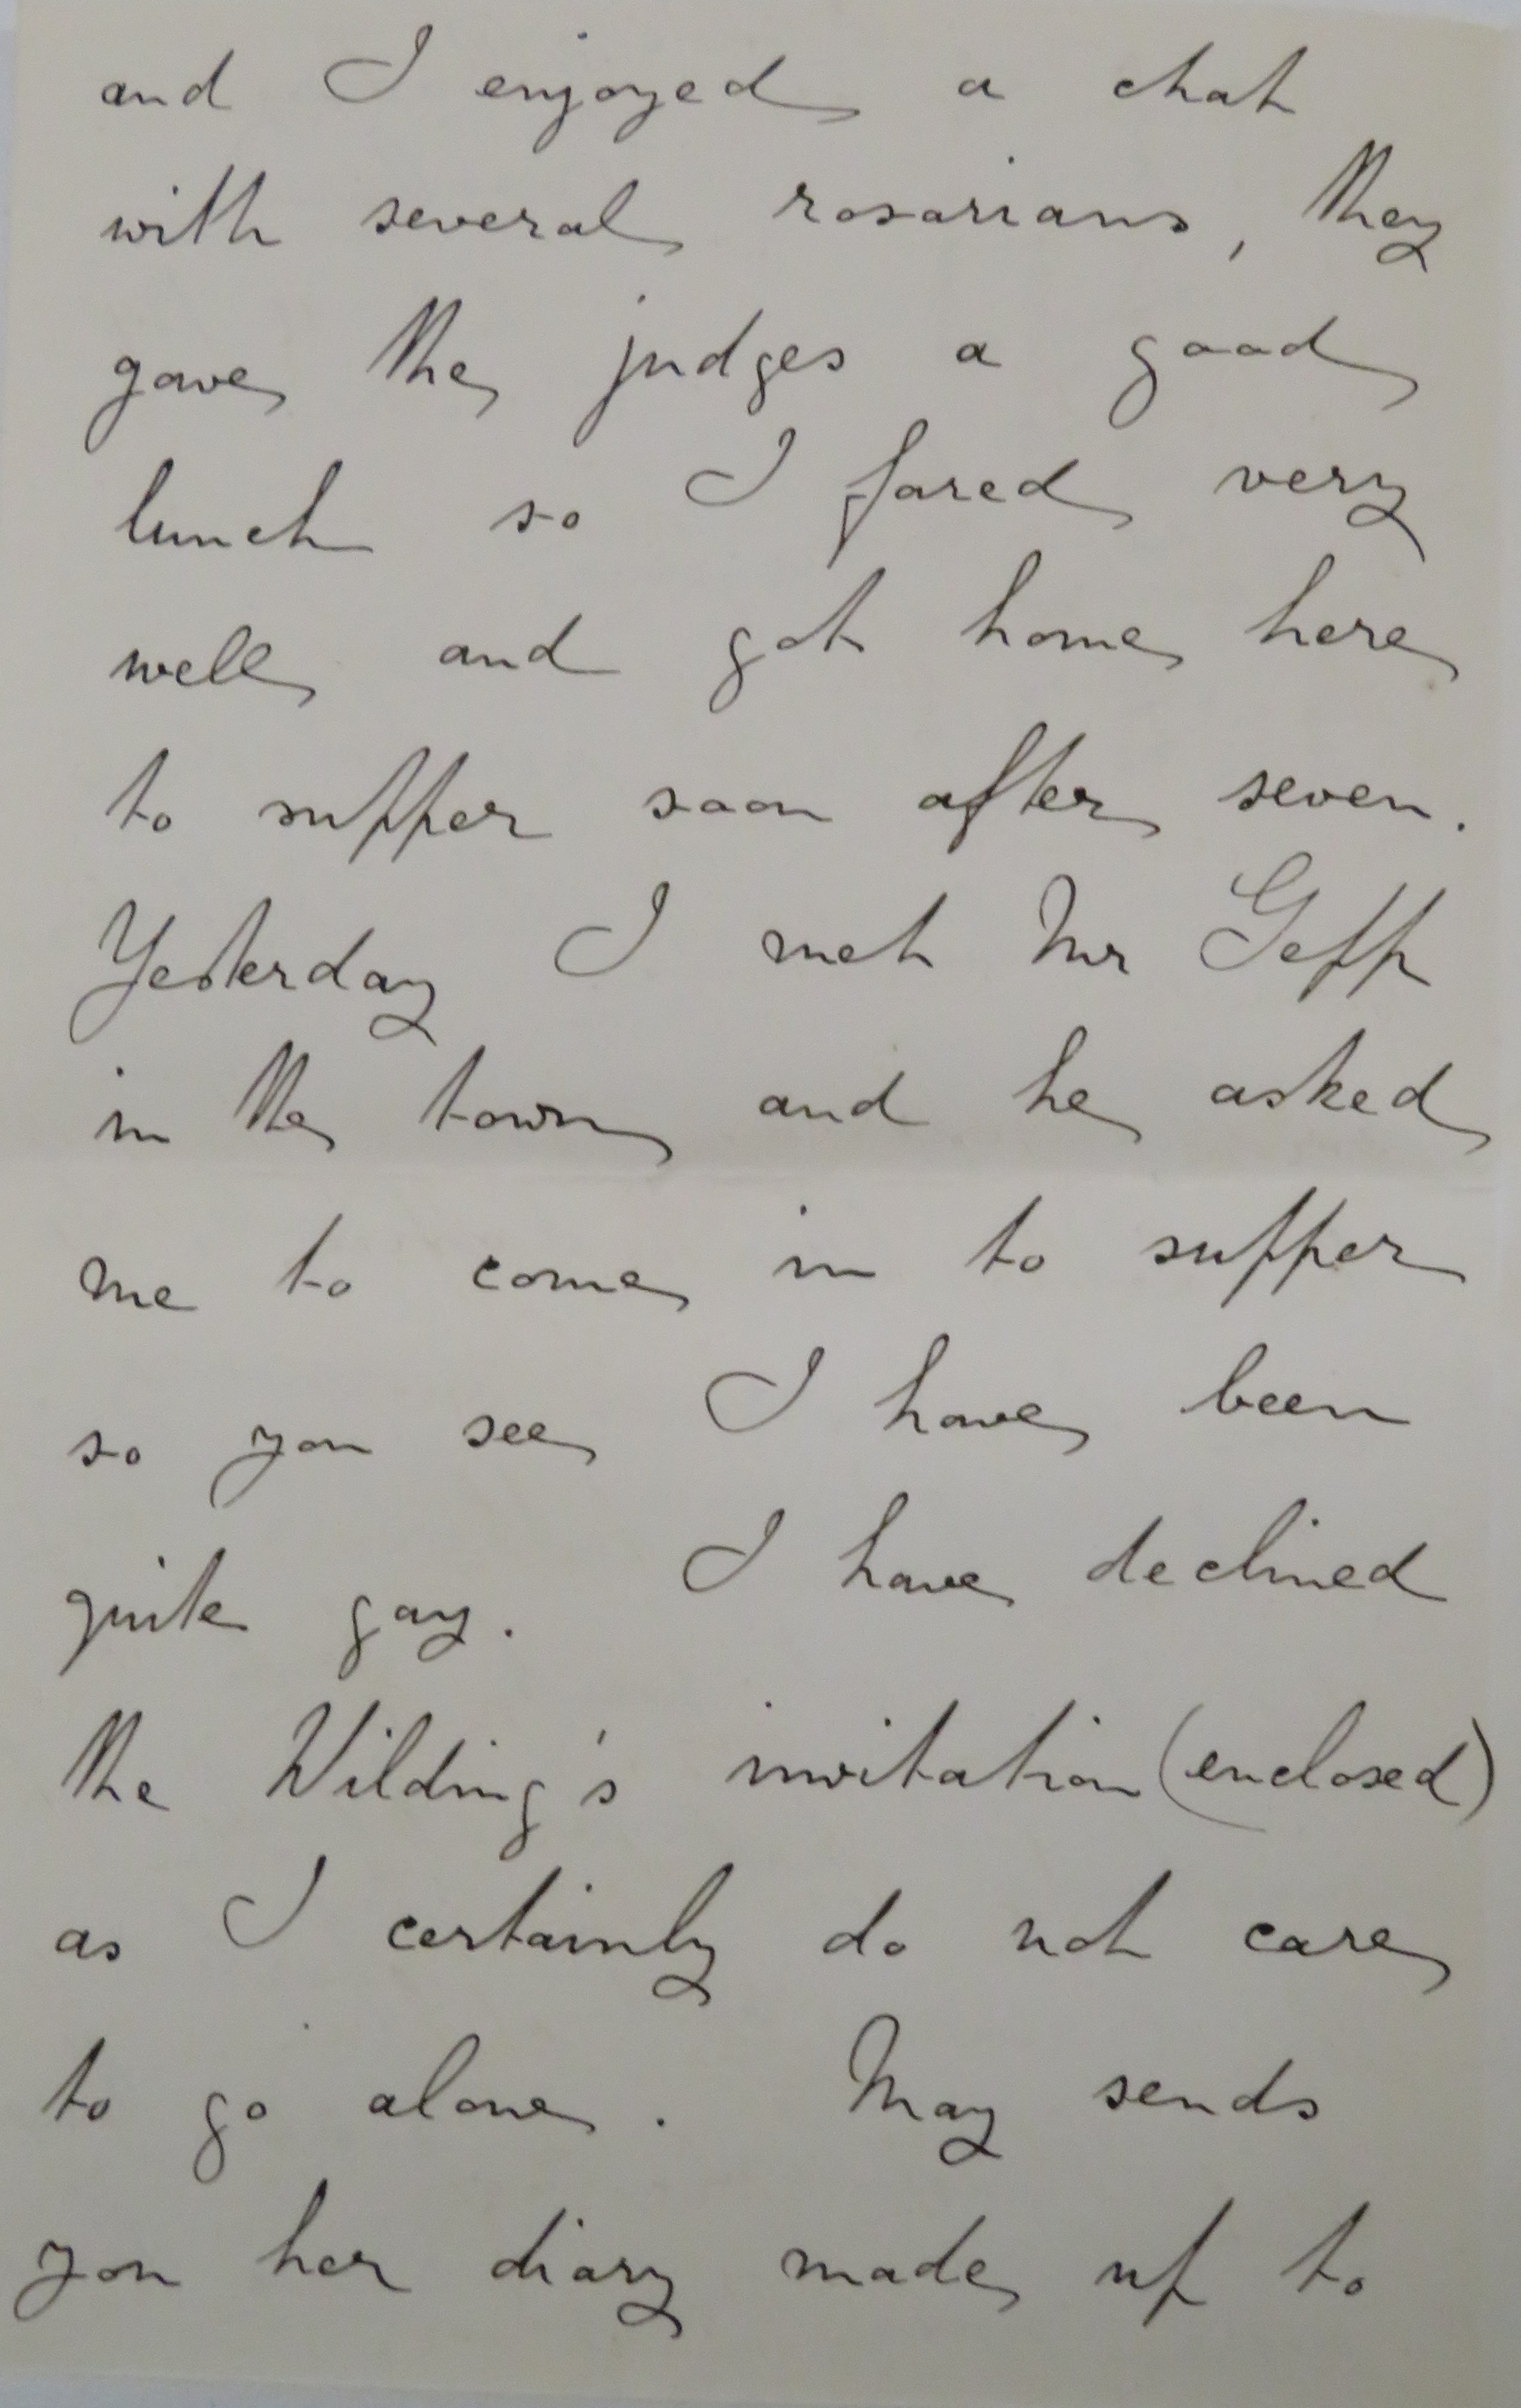 and I enjoyed a chat
with several rosarians, they
gave the judges a good
lunch so I fared very
well and got home here
to supper soon after seven.
Yesterday I met Mr Gepp
in the town and he asked
me to come in to supper
so you see I have been
quite gay. I have declined
the Wilding's invitation (enclosed)
as I certainly do not care
to go alone. May sends
you her diary made up to